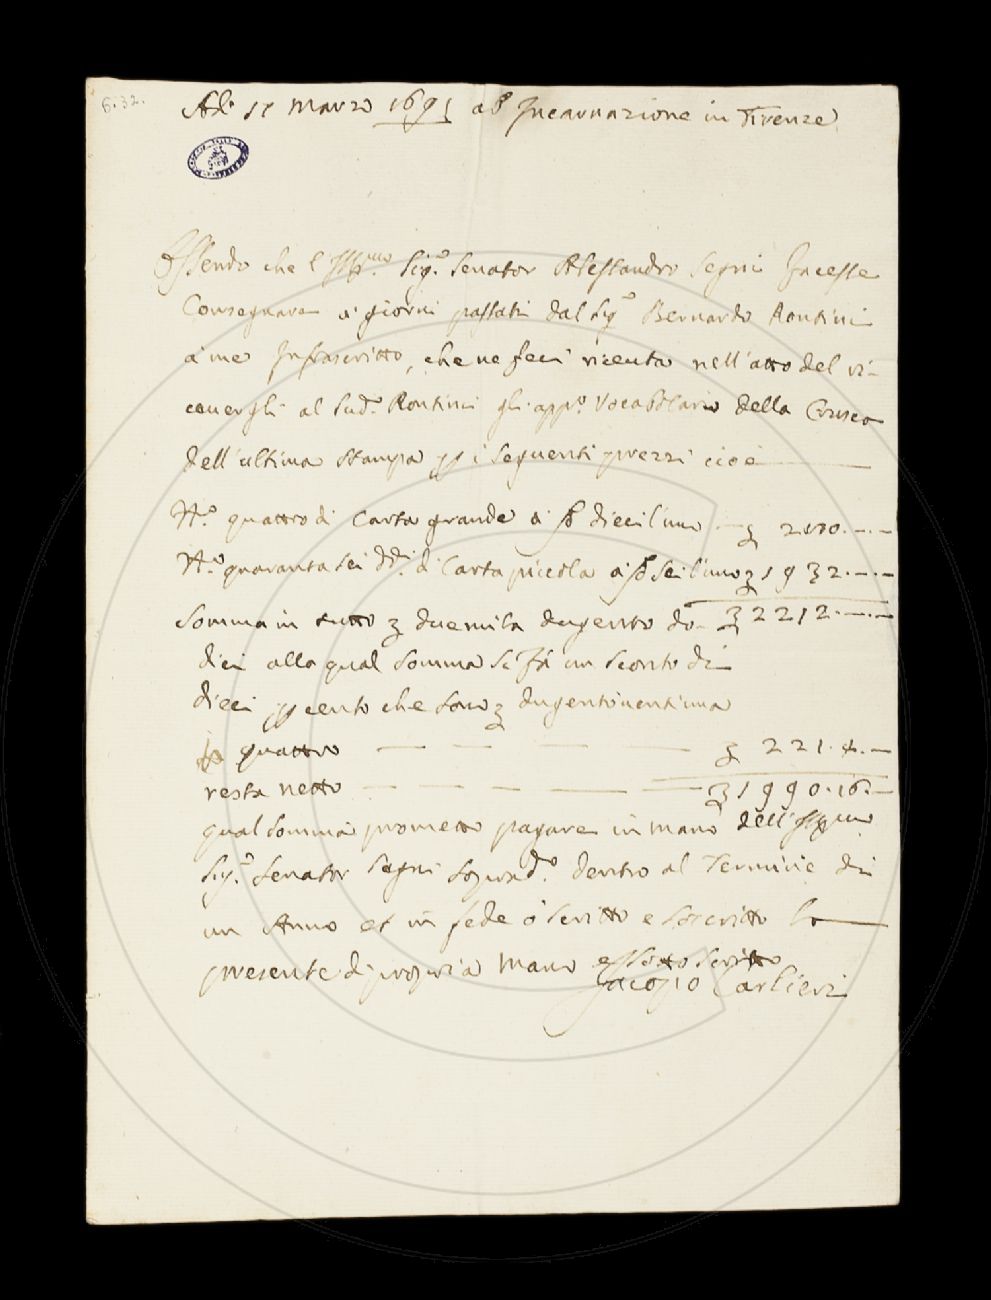 6.32.
Adì 11 Marzo 1691 ab Incarnazione in Firenze
Essendo che l'Ill.mo Sig.r Senator Alessandro Segni facesse
Consegnare a' giorni passati dal Sig.r Bernardo Rontini
a me Infrascritto, che ne feci ricevuta nell'atto del ri-
cevergli al sud.o Rontini gli app.o Vocabolario della Crusca
dell'ultima stampa p i seguenti prezzi cioè
N.o quattro di Carta grande a dieci l'uno 280.-.-
N.o quaranta sei dd.i di Carta piccola a sei l'uno 1932.-.-
Somma in tutto duemila dugento do- 2212.-.-
dici alla qual somma si fà un sconto di
dieci p cento che sono dugentoventuna
quattro 221.4.-
resta netto 1990.16.-
qual somma prometto pagare in mano dell'Ill.mo
Sig.r Senator Segni soprad.o dentro al Termine di
un Anno et in fede ò scritto e soscritto la
presente di propria mano e sottoscritto
Jacopo Carlieri